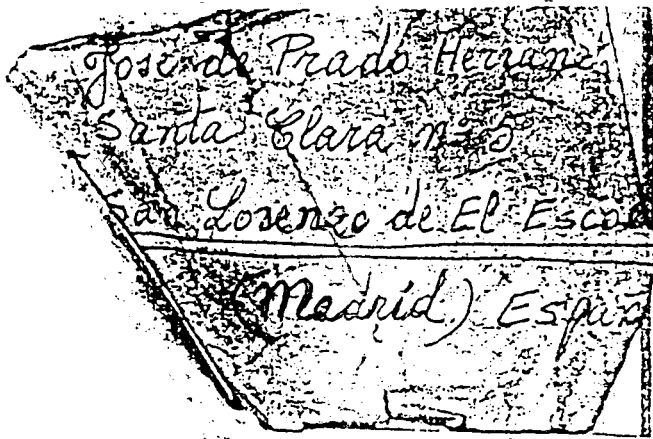 José de Prado Herranz
Santa Clara nº 5
San Lorenzo de El Esco
(Madrid) Españ